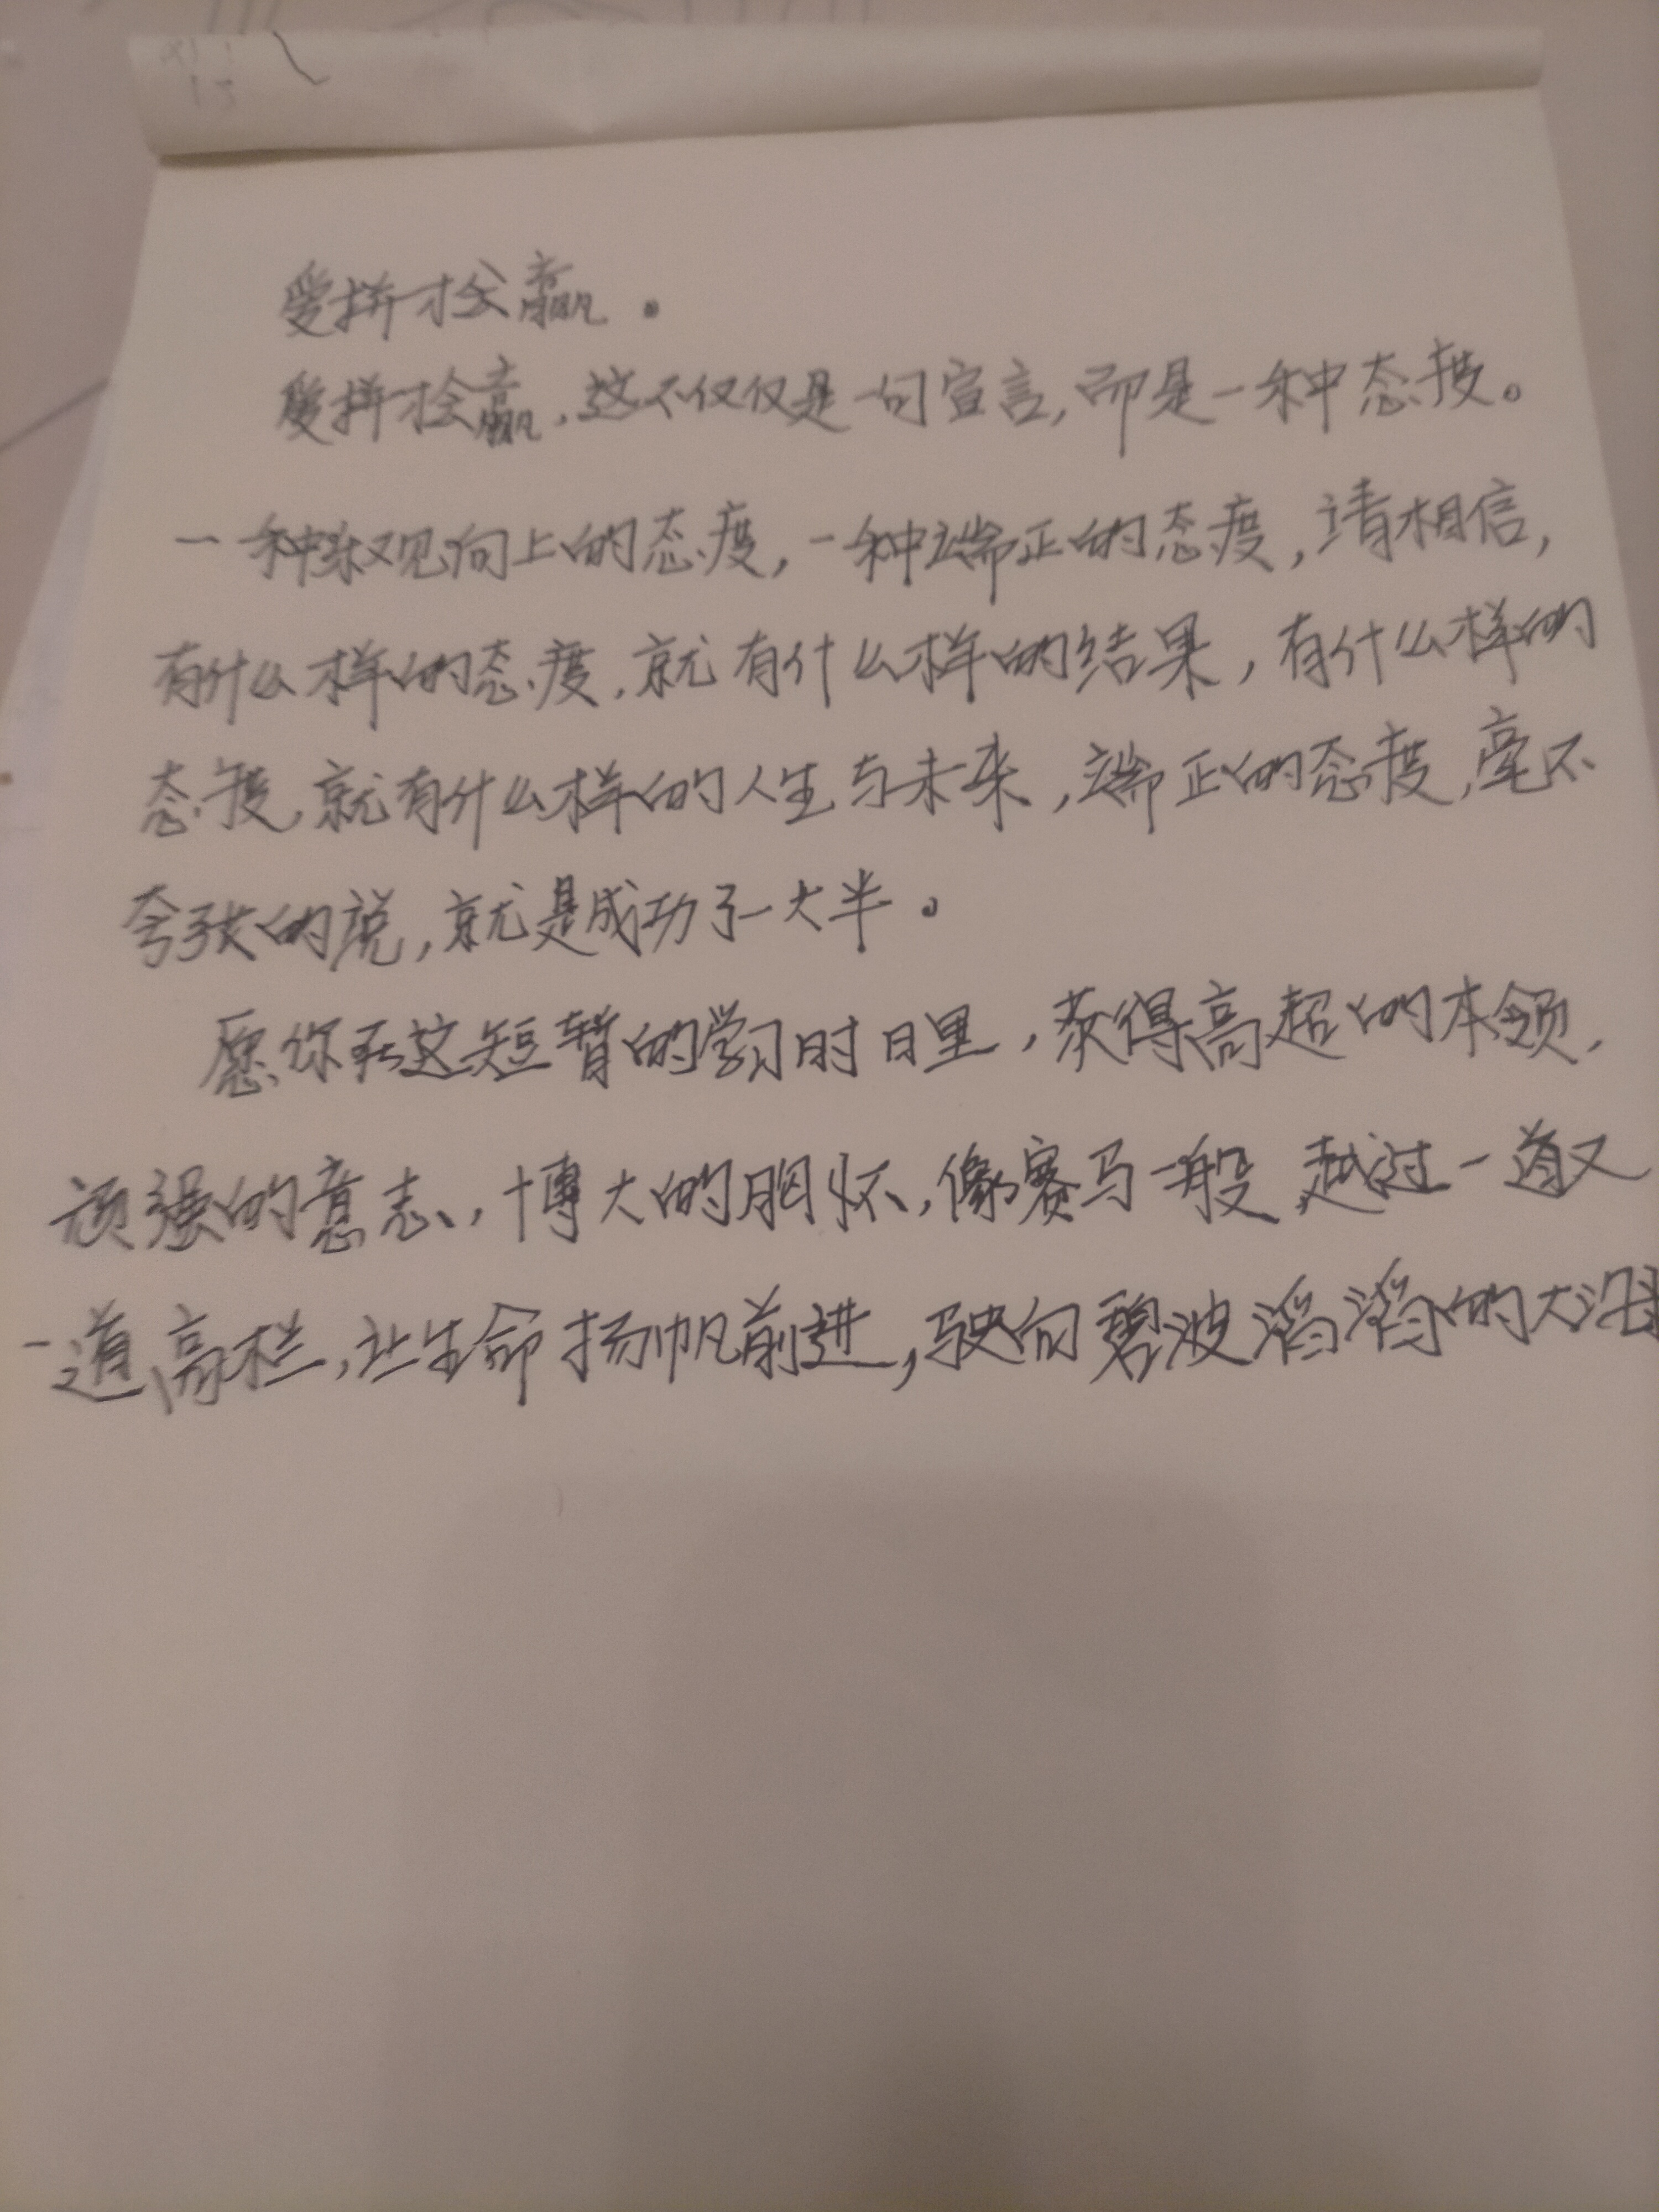 爱拼才会赢。
爱拼才会赢,这不仅仅是一句宣言,而是一种态度。
一种积观向上的态度,一种端正的态度,请相信,
有什么样的态度,就有什么样的结果,有什么样的
态度,就有什么样的人生与未来,端正的态度,毫不
夸张的说,就是成功了一大半。
愿你在这短暂的学习时日里,获得高超的本领,
顽强的意志,博大的胸怀,像赛马一般越过一道又
一道高栏,让生命扬帆前进,驶向碧波滔滔的大海